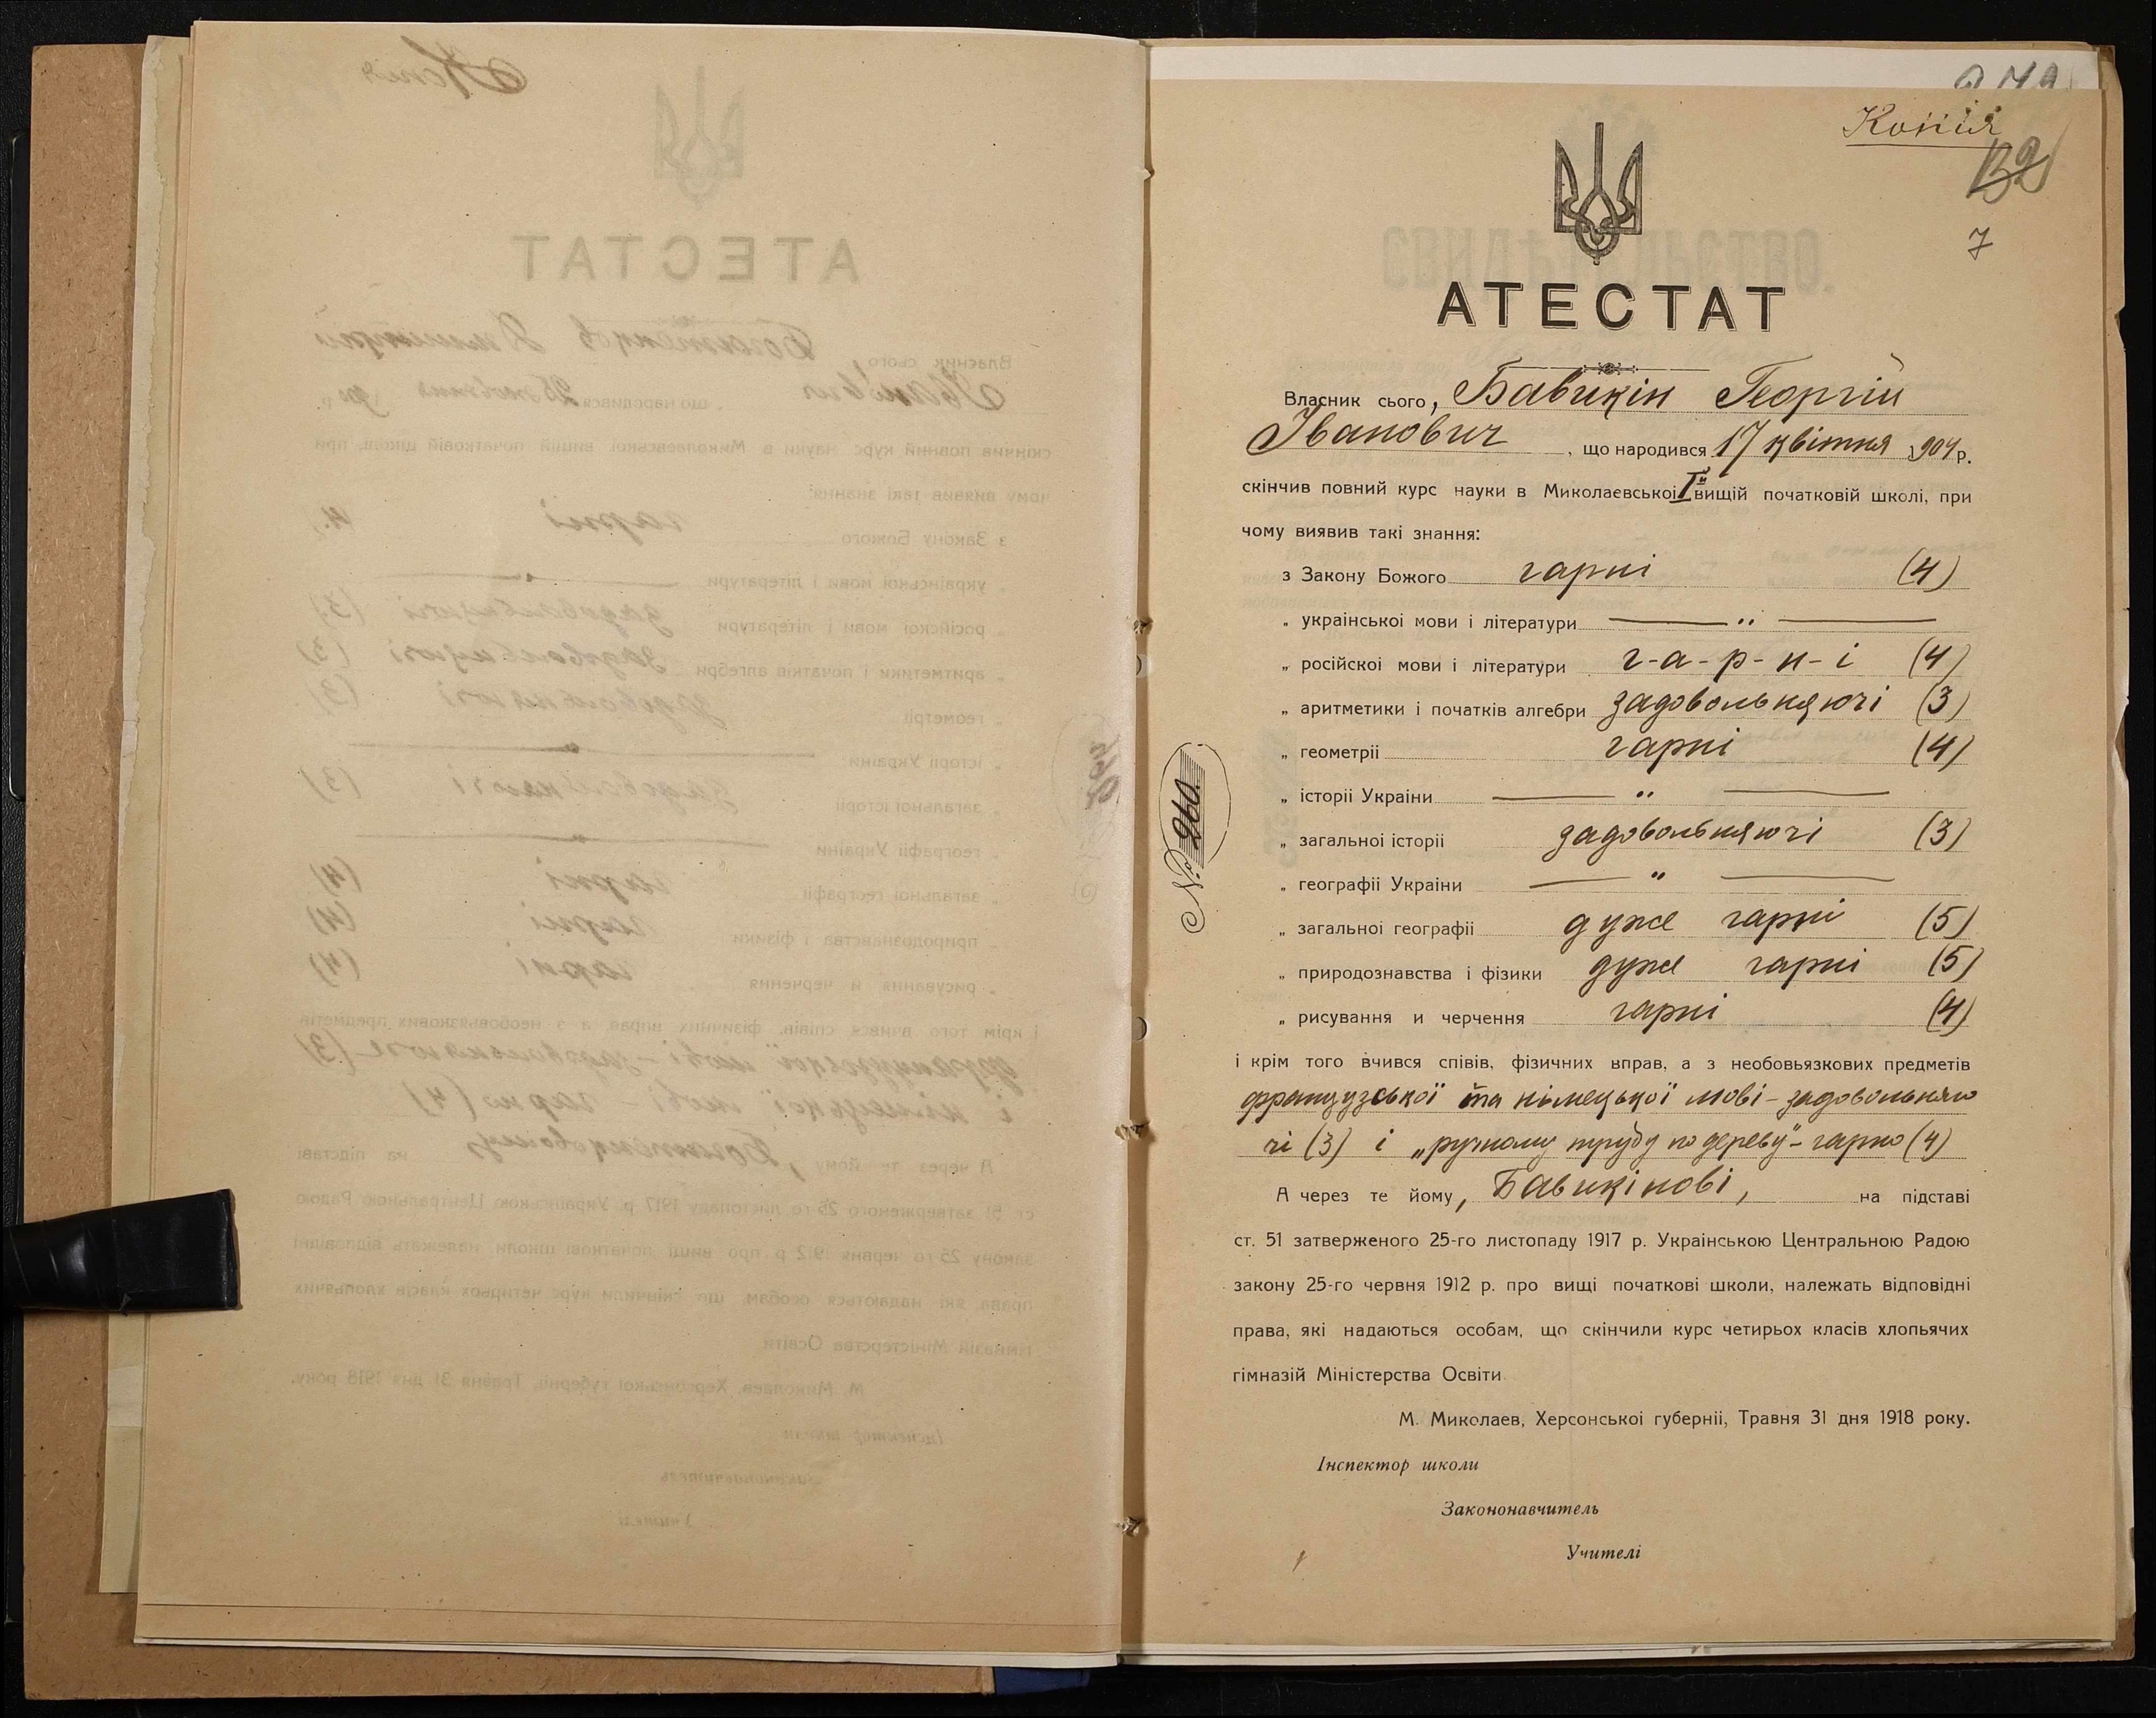 Копія
132
7
АТЕСТАТ
Власник сього, Бавикін Георгій
Іванович, що народився 17 квітня 1904 р.
скінчив повний курс науки в Миколаевськоі І вищій початковій школі, при
чому виявив такі знання:
з Закону Божого гарні (4)
„ украінськоі мови і літератури — „ —
„ російскоі мови і літератури г-а-р-н-і (4)
„ аритметики і початків алгебри задовольняючі (3)
„ геометріі гарні (4)
„ історіі Украіни — „ —
„ загальноі історіі задовольняючі (3)
„ географіі Украіни — „ —
„ загальноі географіі дуже гарні (5)
„ природознавства і фізики дуже гарні (5)
„ рисування и черчення гарні (4)
і крім того вчився співів, фізичних вправ, а з необовьязкових предметів
французської та німецької мові - задовольняю
чі (3) і „ручному труду по дереву" - гарно (4)
А через те йому, Бавикінові, на підставі
ст. 51 затверженого 25-го листопаду 1917 р. Украінською Центральною Радою
закону 25-го червня 1912 р. про вищі початкові школи, належать відповідні
права, які надаються особам, що скінчили курс четирьох класів хлопьячих
гімназій Міністерства Освіти
М. Миколаев, Херсонськоі губерніі, Травня 31 дня 1918 року.
Інспектор школи
Закононавчитель
Учителі
№ 260.